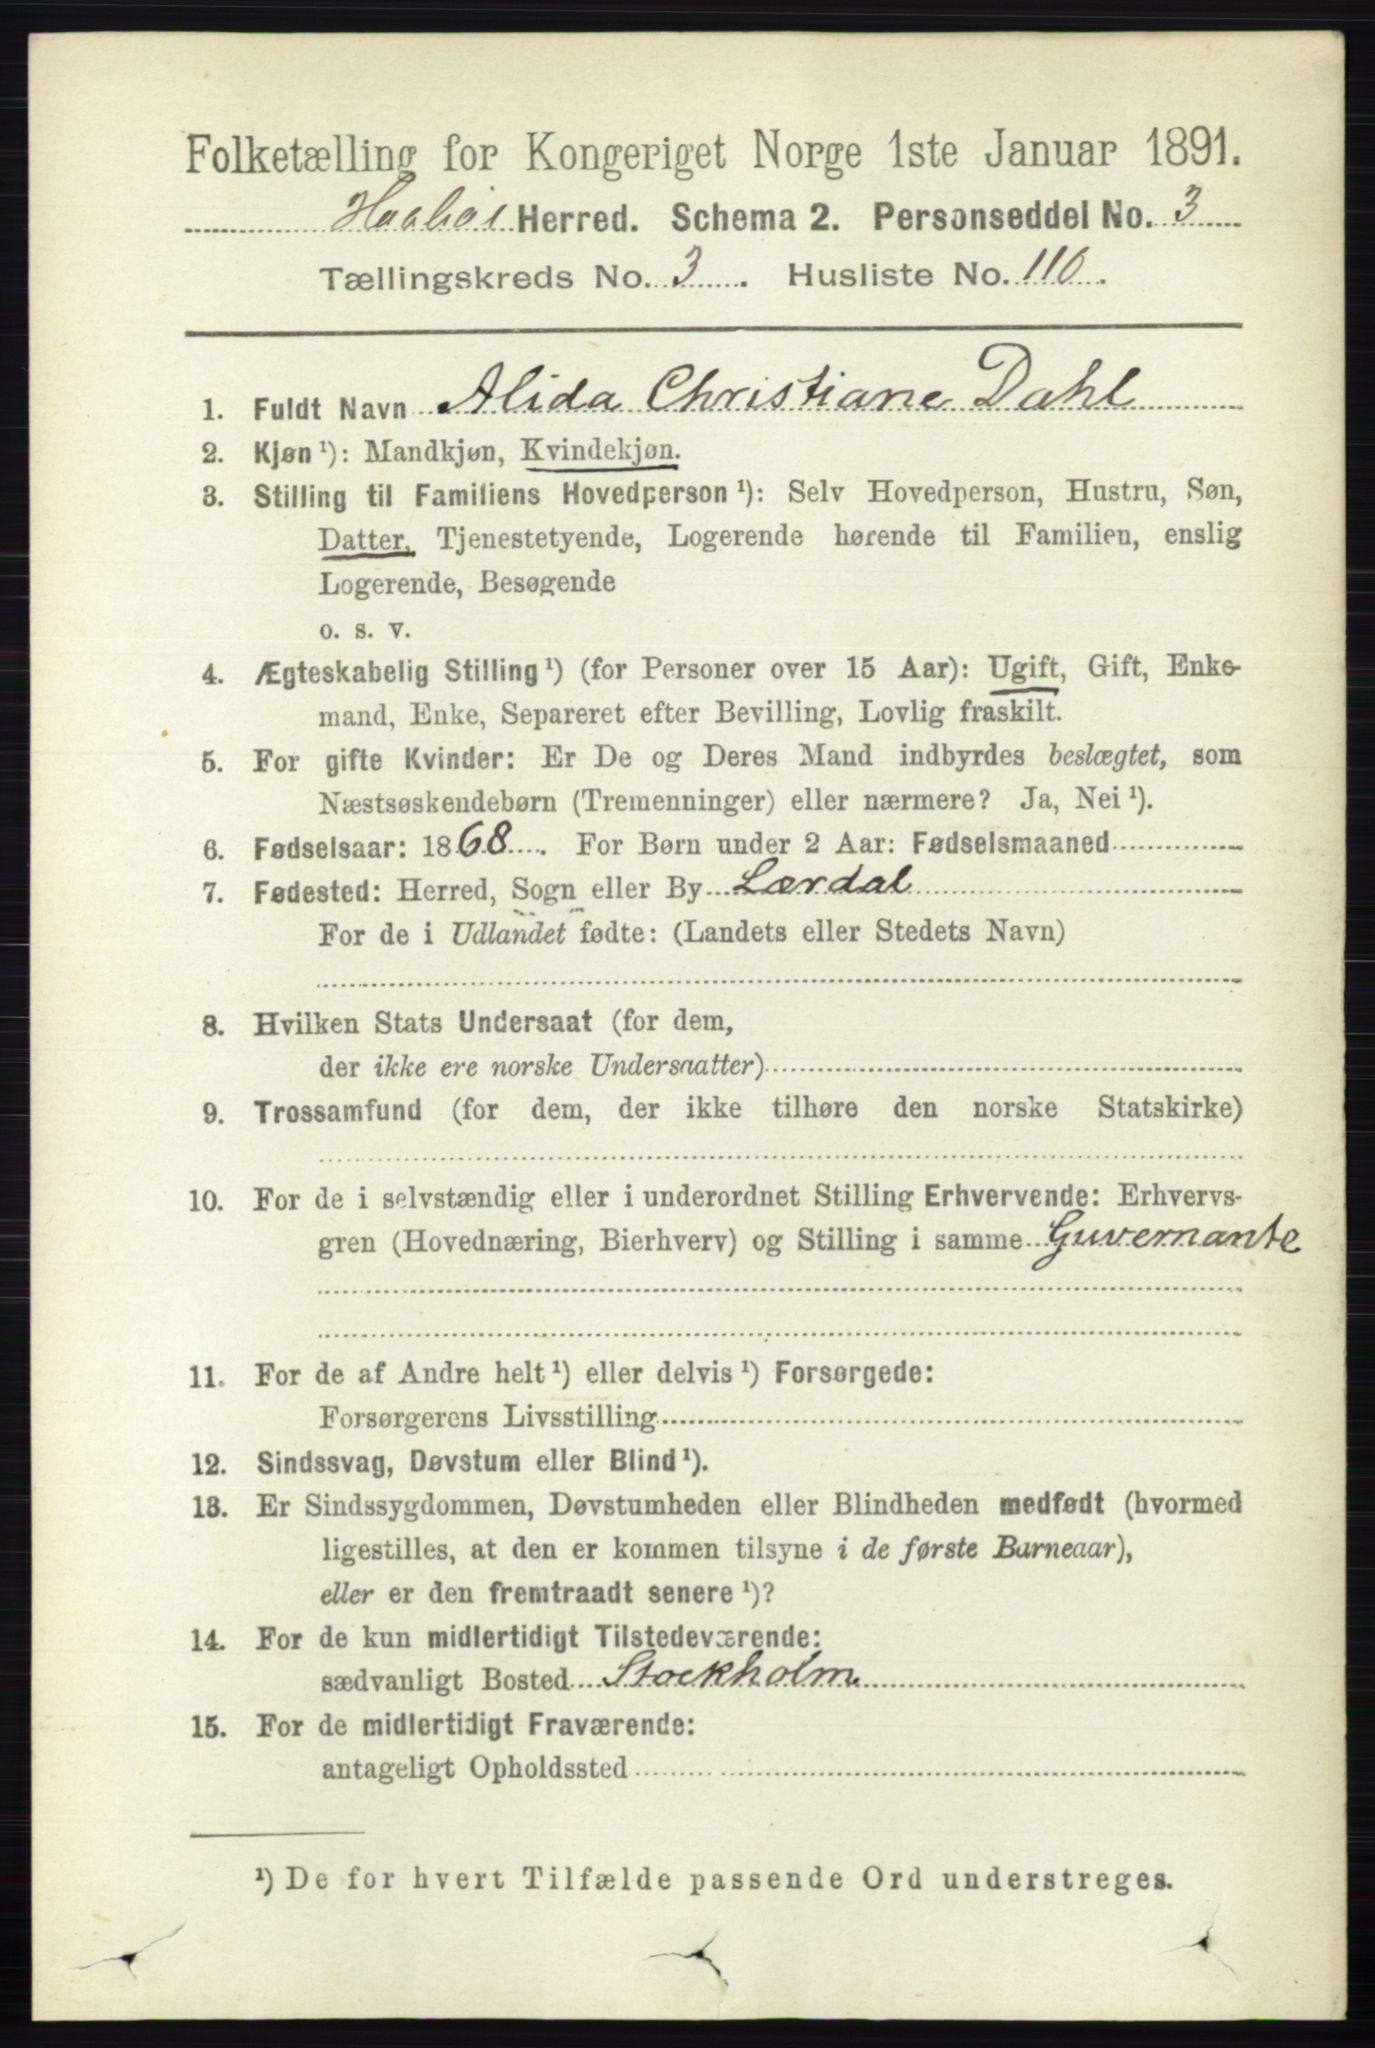 Folketælling for Kongeriget Norge 1ste Januar 1891.
Haabøl Herred. Schema 2. Personseddel No. 3
Tællingskreds No. 3. Husliste No. 110.
1. Fuldt Navn Alida Christiane Dahl
2. Kjøn ¹): Mandkjøn, Kvindekjøn.
3. Stilling til Familiens Hovedperson ¹): Selv Hovedperson, Hustru, Søn,
Datter, Tjenestetyende, Logerende hørende til Familien, enslig
Logerende, Besøgende
o. s. v.
4. Ægteskabelig Stilling ¹) (for Personer over 15 Aar): Ugift, Gift, Enke-
mand, Enke, Separeret efter Bevilling, Lovlig fraskilt.
5. For gifte Kvinder: Er De og Deres Mand indbyrdes beslægtet, som
Næstsøskendebørn (Tremenninger) eller nærmere? Ja, Nei ¹).
6. Fødselsaar: 1868. For Børn under 2 Aar: Fødselsmaaned
7. Fødested: Herred, Sogn eller By Lærdal
For de i Udlandet fødte: (Landets eller Stedets Navn)
8. Hvilken Stats Undersaat (for dem,
der ikke ere norske Undersaatter)
9. Trossamfund (for dem, der ikke tilhøre den norske Statskirke)
10. For de i selvstændig eller i underordnet Stilling Erhvervende: Erhvervs-
gren (Hovednæring, Bierhverv) og Stilling i samme Guvernante
11. For de af Andre helt ¹) eller delvis ¹) Forsørgede:
Forsørgerens Livsstilling
12. Sindssvag, Døvstum eller Blind ¹).
13. Er Sindssygdommen, Døvstumheden eller Blindheden medfødt (hvormed
ligestilles, at den er kommen tilsyne i de første Barneaar),
eller er den fremtraadt senere ¹)?
14. For de kun midlertidigt Tilstedeværende:
sædvanligt Bosted Stockholm
15. For de midlertidigt Fraværende:
antageligt Opholdssted
¹) De for hvert Tilfælde passende Ord understreges.